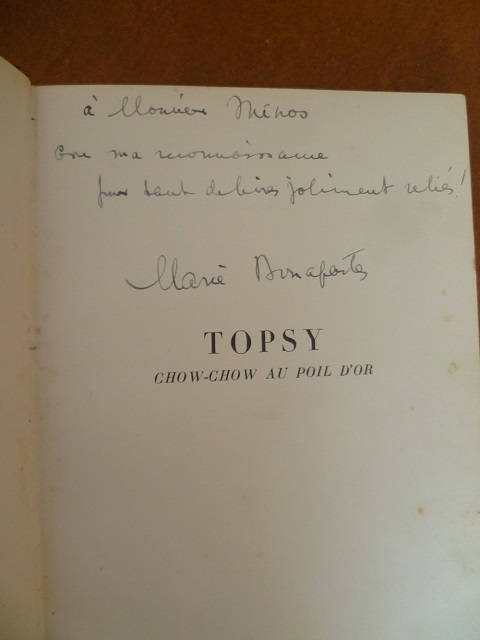 à Monsieur Ménos
avec ma reconnaissance
pour tant de livres joliment reliés!
Marie Bonaparte
TOPSY
CHOW-CHOW AU POIL D'OR